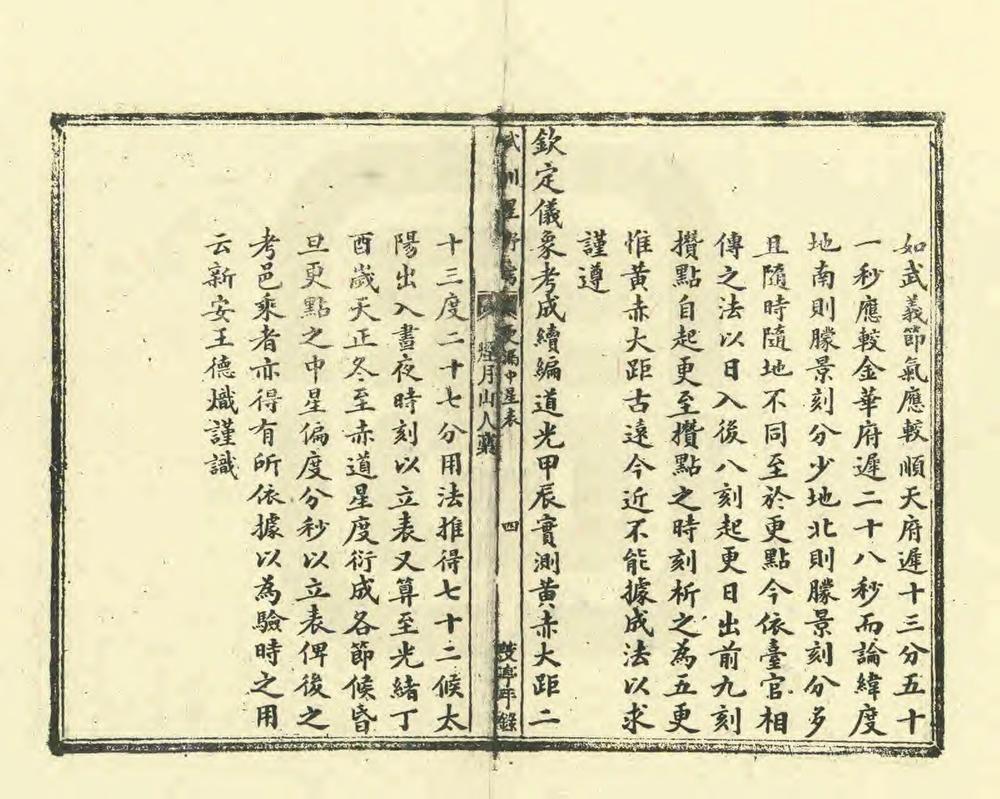 如武義節氣應較順天府遲十三分五十
一秒應較金華府遲二十八秒而論緯度
地南則朦景刻分少地北則朦景刻分多
且隨時隨地不同至於更點今依臺官相
傳之法以日入後八刻起更日出前九刻
攢點自起更至攢點之時刻析之為五更
惟黃赤大距古遠今近不能據成法以求
謹遵
欽定儀象考成續編道光甲辰實測黃赤大距二
更漏中星表
四
月山人
十三度二十七分用法推得七十二候太
陽出入晝夜時刻以立表又算至光緒丁
酉歲天正冬至赤道星度衍成各節候昏
旦更點之中星偏度分秒以立表俾後之
考邑乘者亦得有所依據以為驗時之用
云新安王德熾謹識